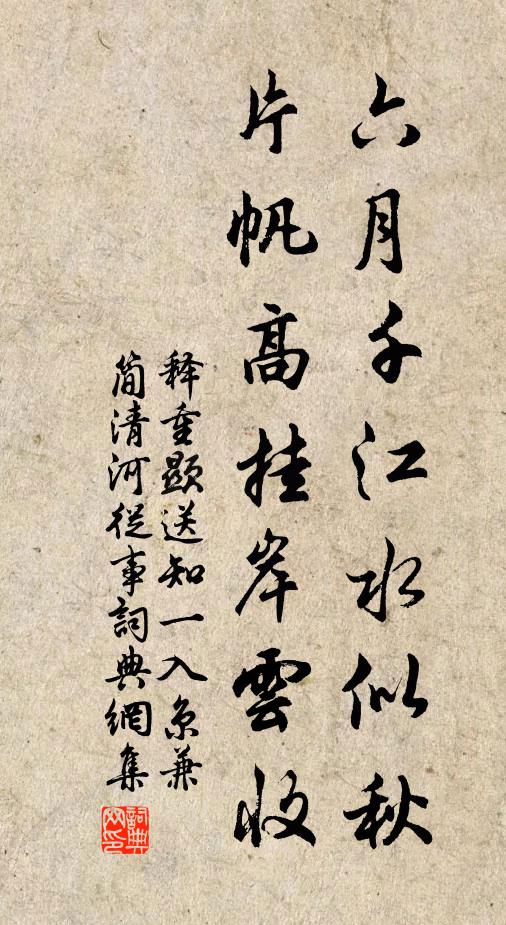 六月千江水似秋
片帆高挂岸雲收
释重顯送知一入京兼
简清河從事詞典網集
詞典
网印